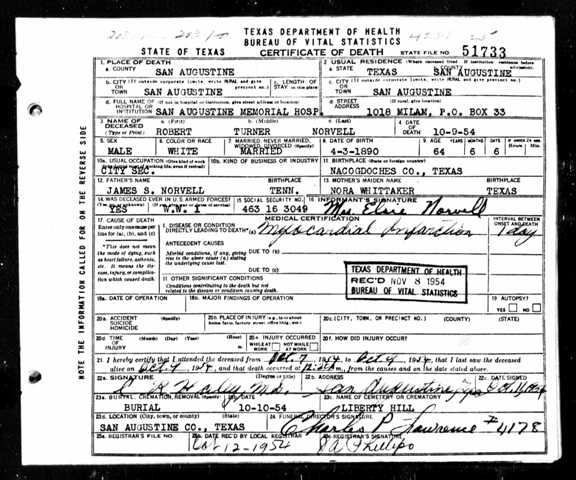 TEXAS DEPARTMENT OF HEALTH
BUREAU OF VITAL STATISTICS
STATE OF TEXAS CERTIFICATE OF DEATH STATE FILE NO. 51733
1. PLACE OF DEATH 2. USUAL RESIDENCE
a. COUNTY SAN AUGUSTINE a. STATE TEXAS b. COUNTY SAN AUGUSTINE
b. CITY OR TOWN SAN AUGUSTINE c. LENGTH OF STAY c. CITY OR TOWN SAN AUGUSTINE
d. FULL NAME OF HOSPITAL OR INSTITUTION SAN AUGUSTINE MEMORIAL HOSP. d. STREET ADDRESS 1018 MILAM, P.O. BOX 33
3. NAME OF DECEASED (Type or Print) a. (First) ROBERT b. (Middle) TURNER c. (Last) NORVELL 4. DATE OF DEATH 10-9-54
5. SEX MALE 6. COLOR OR RACE WHITE 7. MARRIED, NEVER MARRIED, WIDOWED, DIVORCED (Specify) MARRIED 8. DATE OF BIRTH 4-3-1890 9. AGE 64 6 6
10a. USUAL OCCUPATION CITY SEC. 10b. KIND OF BUSINESS OR INDUSTRY 11. BIRTHPLACE (State or foreign country) NACOGDOCHES CO., TEXAS
12. FATHER'S NAME JAMES S. NORVELL BIRTHPLACE TENN. 13. MOTHER'S MAIDEN NAME NORA WHITTAKER BIRTHPLACE TEXAS
14. WAS DECEASED EVER IN U.S. ARMED FORCES? YES W.W. I 15. SOCIAL SECURITY NO. 463 16 3049 16. INFORMANT'S SIGNATURE Mrs Elsie Norvell
17. CAUSE OF DEATH MEDICAL CERTIFICATION INTERVAL BETWEEN ONSET AND DEATH
Enter only one cause per line for (a), (b), and (c)
I. DISEASE OR CONDITION DIRECTLY LEADING TO DEATH (a) Myocardial Infarction 1 day
*This does not mean the mode of dying, such as heart failure, asthenia, etc. It means the disease, injury, or complication which caused death.
ANTECEDENT CAUSES
Morbid conditions, if any, giving rise to the above cause (a) stating the underlying cause last.
DUE TO (b)
DUE TO (c)
II. OTHER SIGNIFICANT CONDITIONS
Conditions contributing to the death but not related to the disease or condition causing death.
TEXAS DEPARTMENT OF HEALTH
REC'D NOV 8 1954
BUREAU OF VITAL STATISTICS
18a. DATE OF OPERATION 18b. MAJOR FINDINGS OF OPERATION 19. AUTOPSY? YES NO
20a. ACCIDENT SUICIDE HOMICIDE 20b. PLACE OF INJURY 20c. (CITY, TOWN, OR PRECINCT NO.) (COUNTY) (STATE)
20d. TIME OF INJURY 20e. INJURY OCCURRED WHILE AT WORK NOT WHILE AT WORK 20f. HOW DID INJURY OCCUR?
21. I hereby certify that I attended the deceased from Oct 7 1954 to Oct 9 1954, that I last saw the deceased
alive on Oct 9 1954, and that death occurred at m., from the causes and on the date stated above.
22a. SIGNATURE (Degree or title) 22b. ADDRESS 22c. DATE SIGNED
Haley M.D. San Augustine
23a. BURIAL, CREMATION, REMOVAL (Specify) BURIAL 23b. DATE 10-10-54 23c. NAME OF CEMETERY OR CREMATORY LIBERTY HILL
23d. LOCATION (City, town, or county) (State) SAN AUGUSTINE CO., TEXAS 24. FUNERAL DIRECTOR'S SIGNATURE Charles P. Lawrence # 4178
25a. REGISTRAR'S FILE NO. 25b. DATE REC'D BY LOCAL REGISTRAR 12-1954 25c. REGISTRAR'S SIGNATURE Phillips
NOTE THE INFORMATION CALLED FOR ON THE REVERSE SIDE